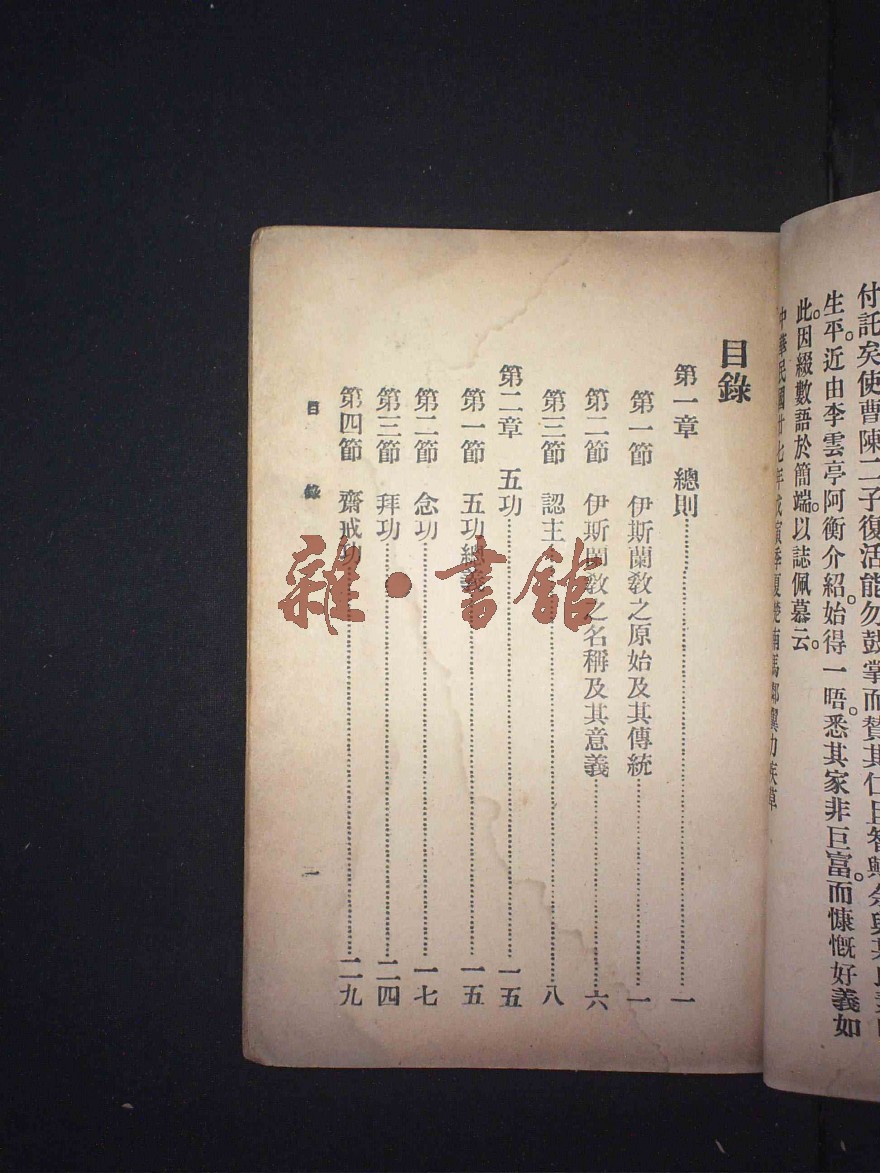 付託矣使曹陳二子復活能勿鼓掌而贊其仁且智與余與
生平。近由李雲亭阿衡介紹。始得一晤。悉其家非巨富。而慷慨好義如
此。因綴數語於簡端。以誌佩慕云。
中華民國廿七年戊寅季夏楚南馬鄰翼力疾草
目錄
第一章 總則…………一
第一節 伊斯蘭敎之原始及其傳統…………一
第二節 伊斯蘭敎之名稱及其意義…………六
第三節 認主…………八
第二章 五功…………一五
第一節 五功總義…………一五
第二節 念功…………一七
第三節 拜功…………二四
第四節 齋戒功…………二九
目 錄 一
雜·書館